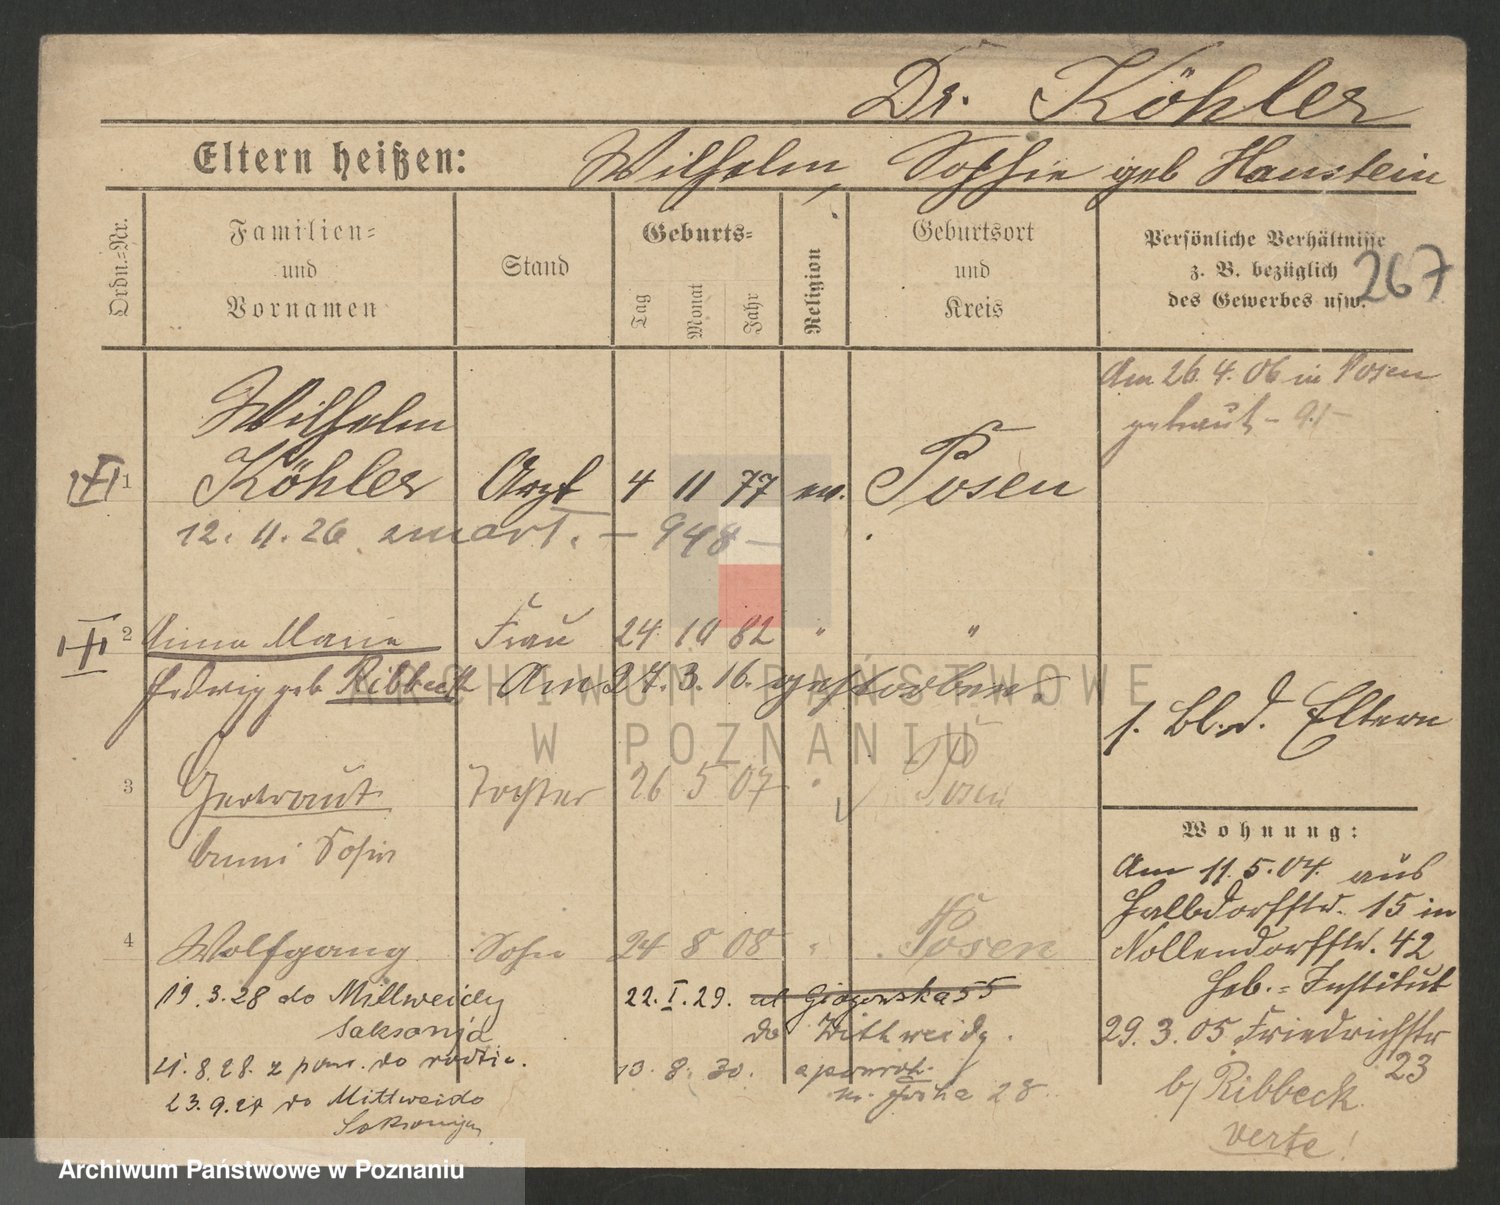 Dr. Köhler
Eltern heißen: Wilhelm, Sophie geb Hanstein
Ordn.-Nr.
Familien-
und
Vornamen
Stand
Geburts-
Tag
Monat
Jahr
Religion
Geburtsort
und
Kreis
Persönliche Verhältnisse
z. B. bezüglich
des Gewerbes usw.
267
Am 26. 4. 06 in Posen
getraut
Wilhelm
1 Köhler Arzt 4 11 77 ev. Posen
12. 11. 26 zmarł. – 948 –
2 Anna Marie Frau 24 10 82 " "
Hedwig geb. Ribbeck Am 27. 3. 16. gestorben.
s. Bl. d. Eltern
3 Gertraut Tochter 26 5 07 " Posen
Anni Sofie
4 Wolfgang Sohn 24 8 08 " Posen
19. 3. 28 do Mittweidy
Saksonja
8. 28. z pow. do
23. 9. do Mittweida
22. I. 29. ul Głogowska 55
do Mittweidy.
13. 8. 30.
28
Wohnung:
Am 11. 5. 04. aus
Halbdorfstr. 15 in
Nollendorfstr. 42
Heb.-Institut
29. 3. 05 Friedrichstr
23
b/ Ribbeck
verte!
ARCHIWUM PAŃSTWOWE
W POZNANIU
Archiwum Państwowe w Poznaniu